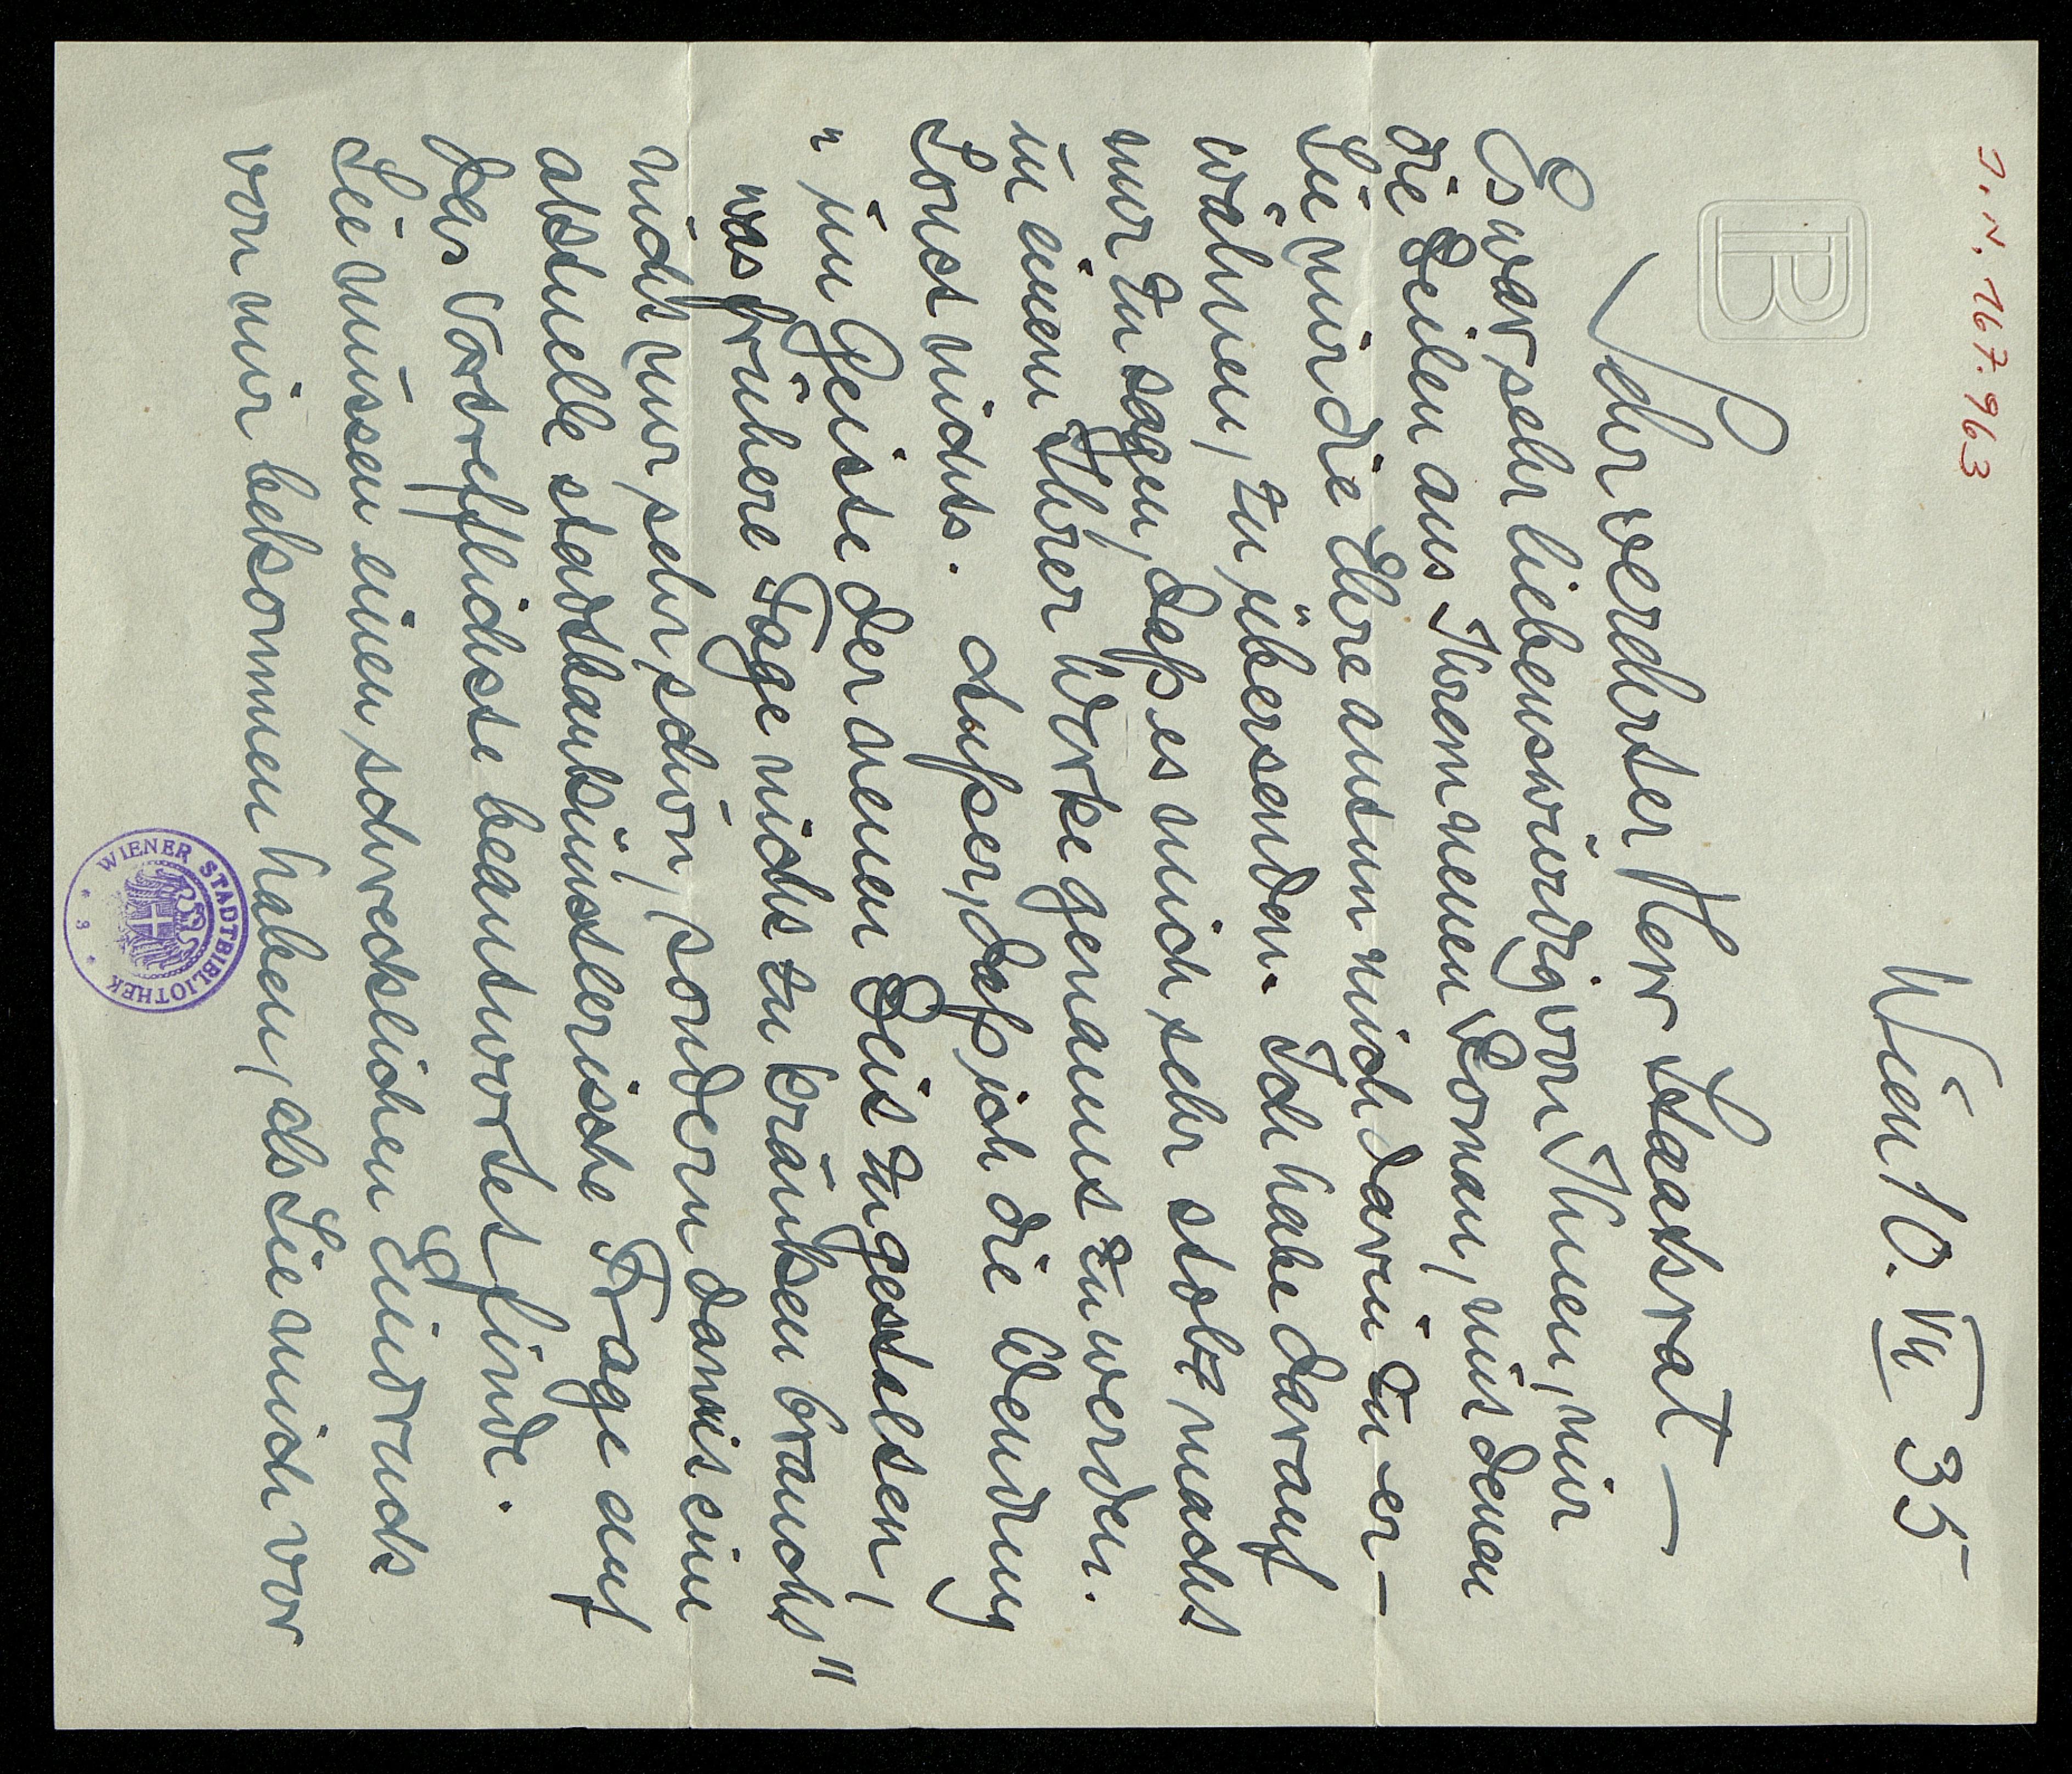 J. N. 167.963
PB
Wien 10. VII 35
Sehr verehrter Herr Staatsrat —
Es war sehr liebenswürdig von Ihnen, mir
die Zeilen aus Ihrem neuen Roman, mit denen
Sie mir die Ehre antun mich darin zu er-
wähnen, zu übersenden. Ich habe darauf
nur zu sagen, daß es mich sehr stolz macht
in einem Ihrer Werke genannt zu werden.
Sonst nichts. Außer, daß ich die Wendung
" im Geiste der neuen Zeit zugestalten,
was frühere Tage nicht zu kränken braucht"
nicht nur sehr schön, sondern damit eine
aktuelle stadtbaukünstlerische Frage auf
das Vortrefflichste beantwortet finde.
Sie müssen einen schrecklichen Eindruck
von mir bekommen haben, als Sie mich vor
WIENER STADTBIBLIOTHEK
* 8 *